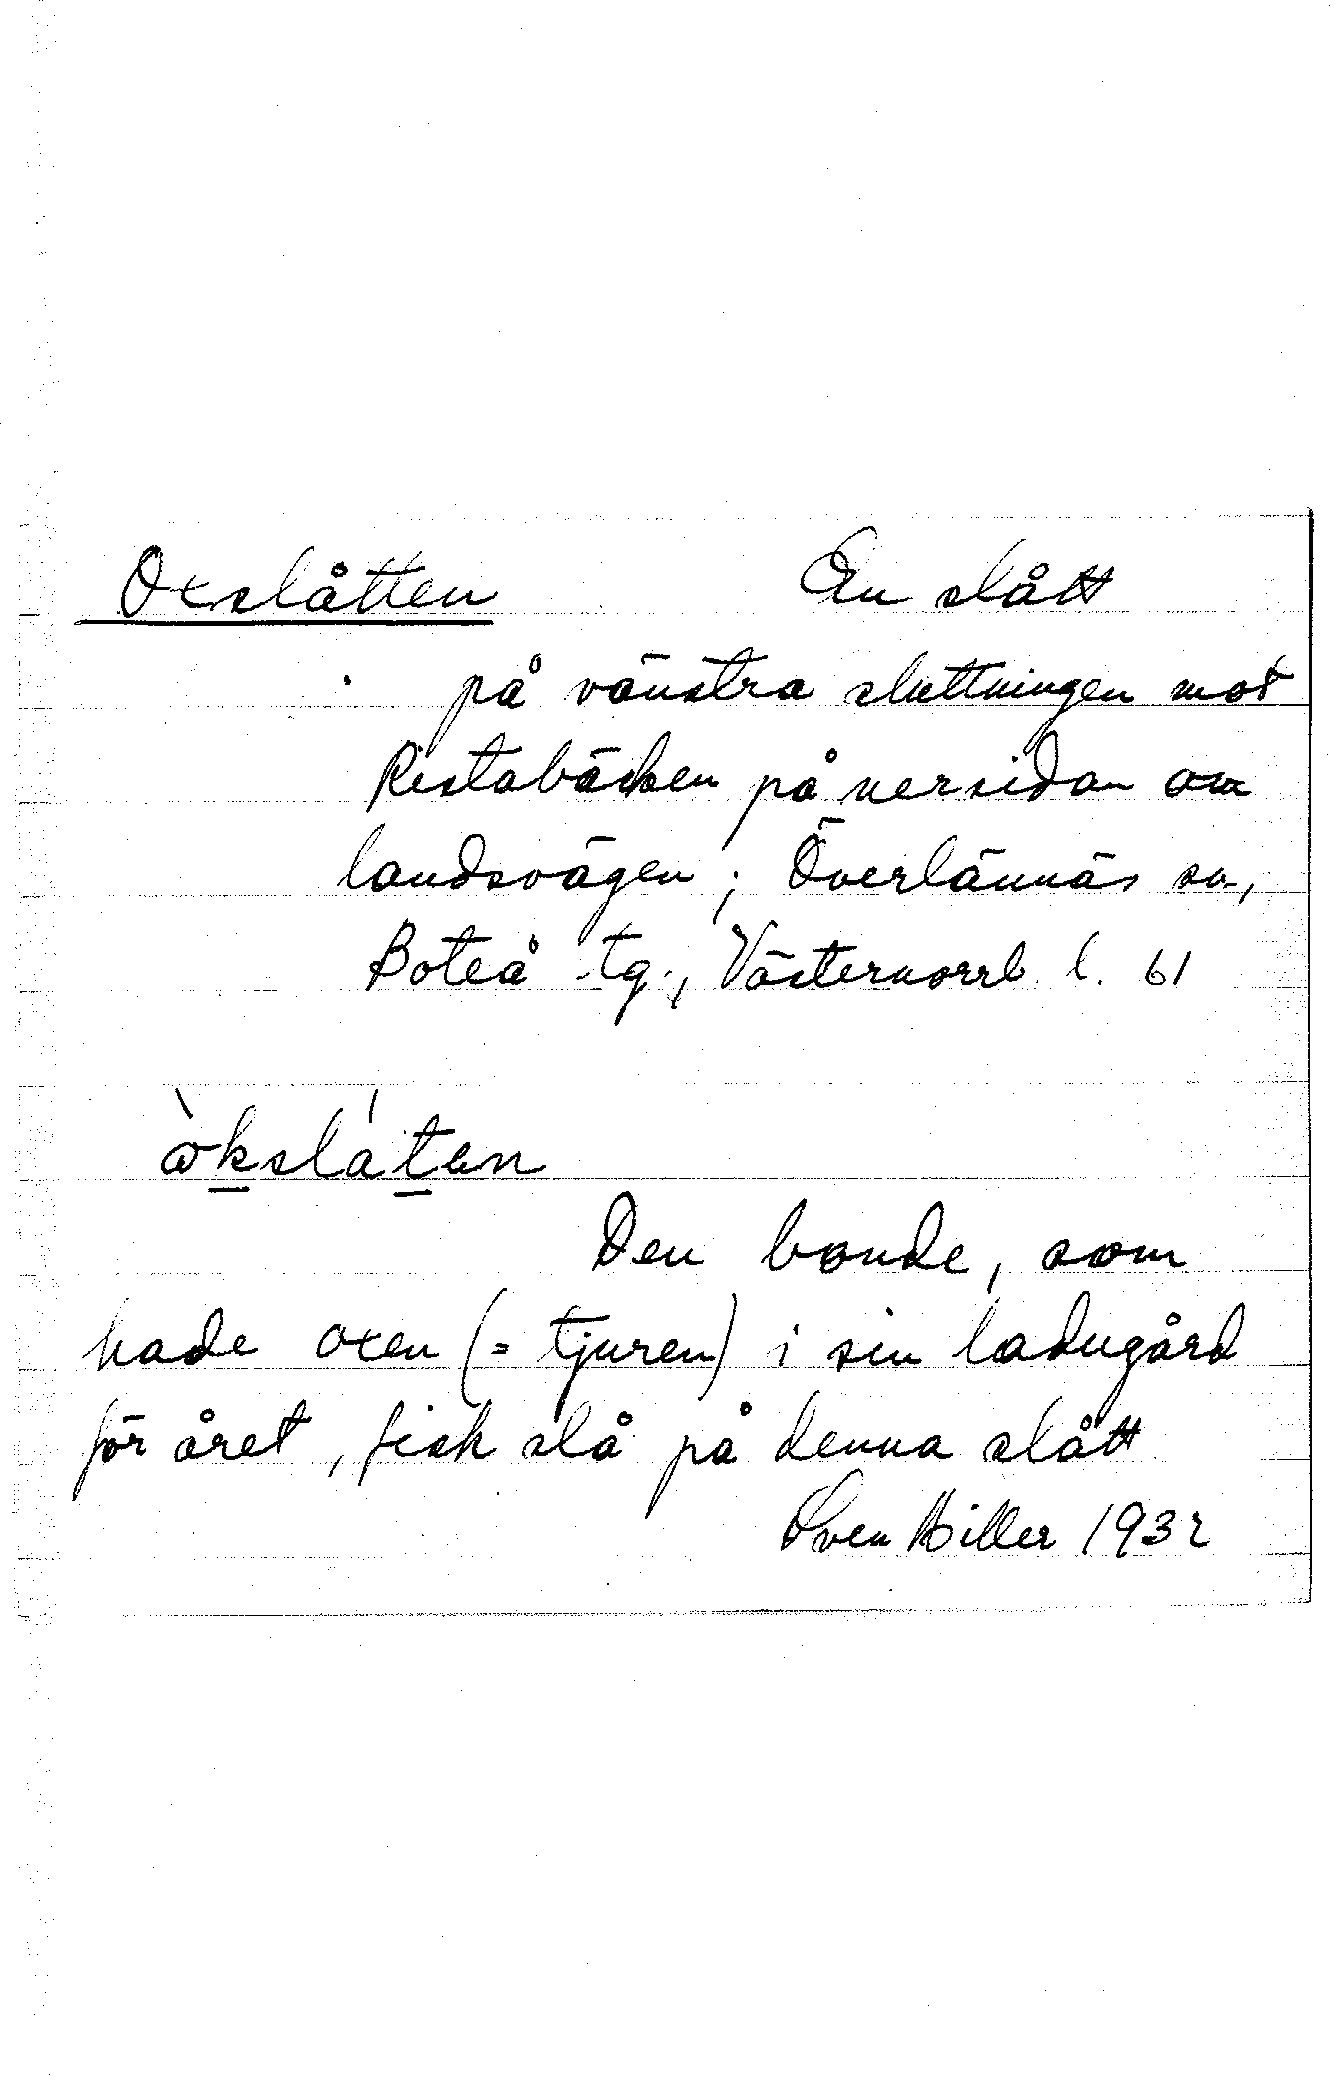 Oxslåtten En slått
på vänstra sluttningen mot
Ristabäcken på nersidan om
landsvägen; Överlännäs sn,
Boteå tg., Västernorrl l. 61
òksláten
Den bonde, som
hade oxen (= tjuren) i sin ladugård
för året, fick slå på denna slått
Sven Hiller 1932